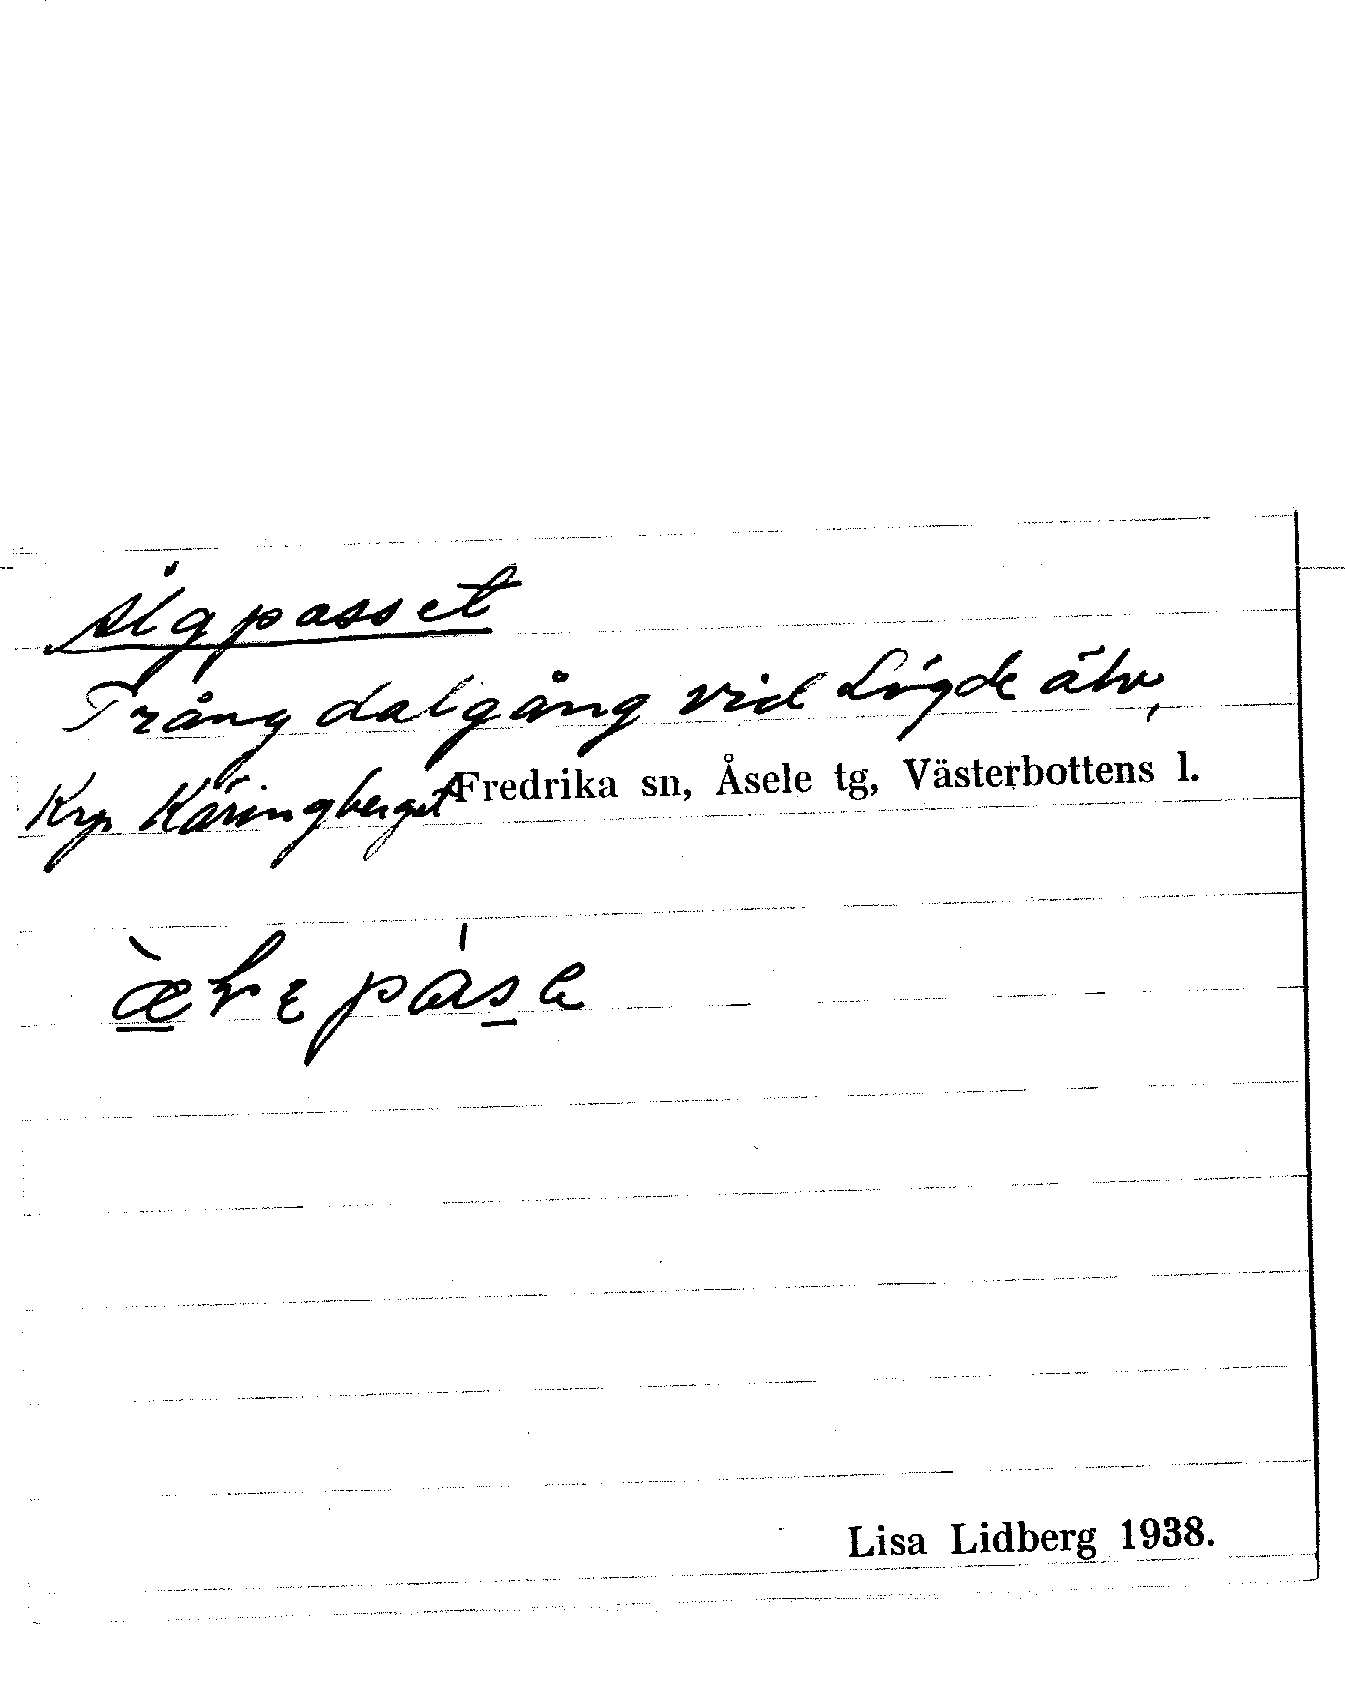 Älgpasset
Trång dalgång vid Lögde älv,
Krp Käringberget Fredrika sn, Åsele tg, Västerbottens l.
Lisa Lidberg 1938.